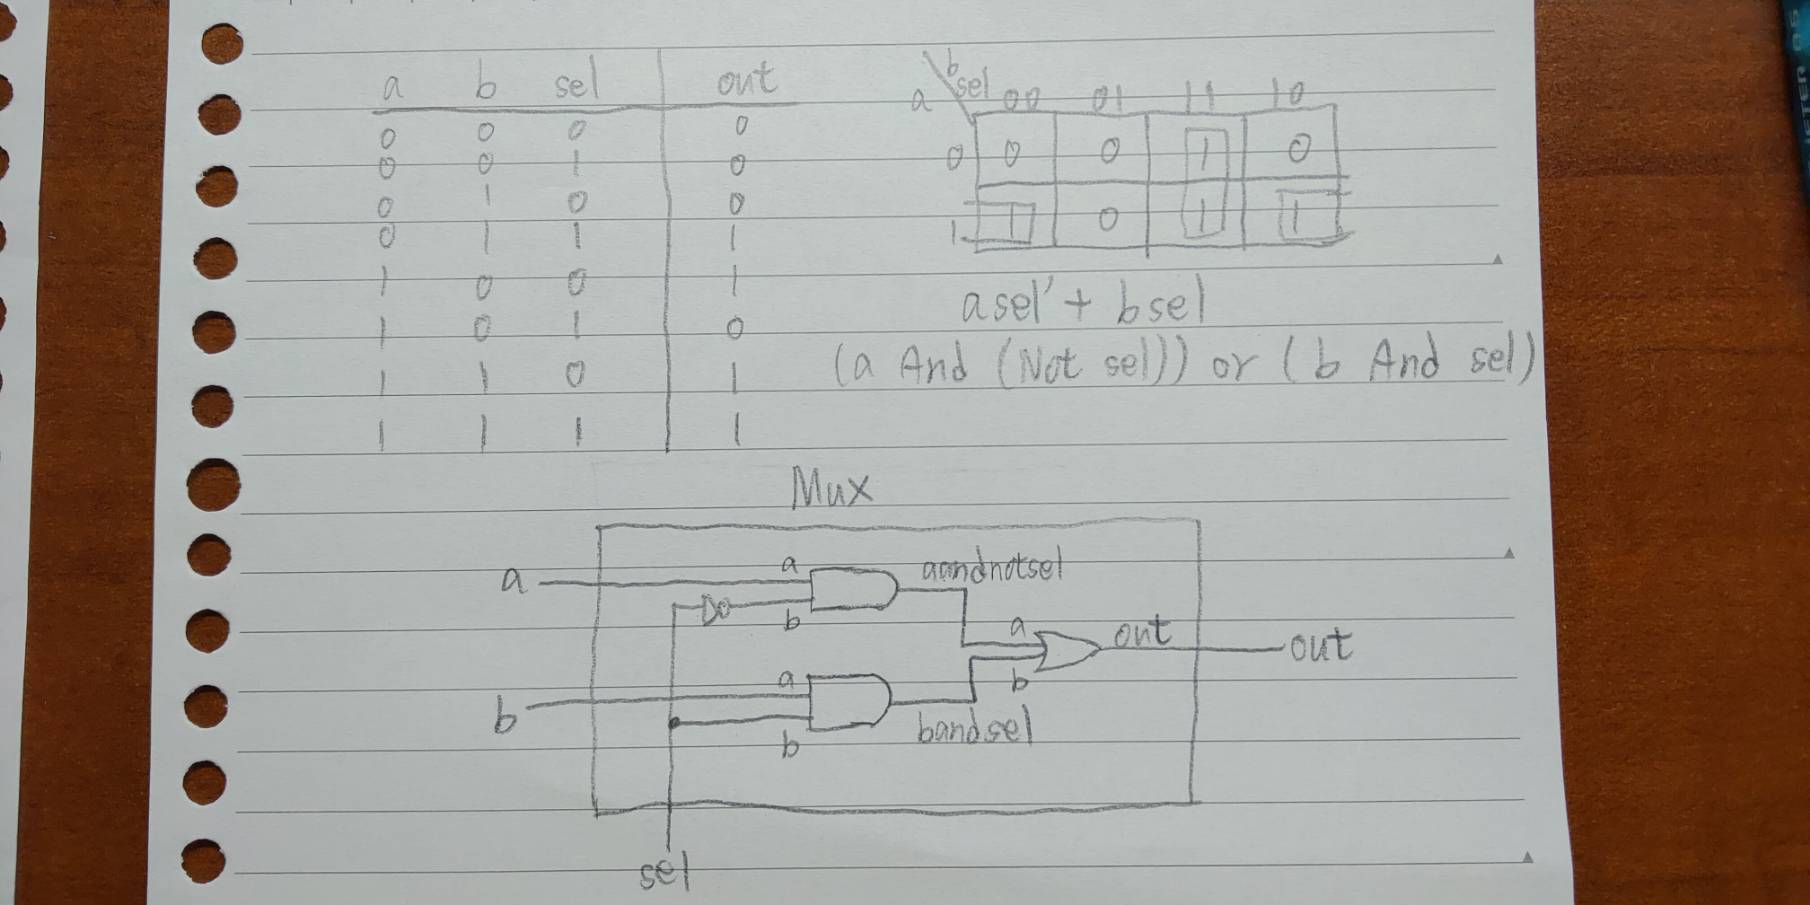 a b sel out
0 0 0 0
0 0 1 0
0 1 0 0
0 1 1 1
1 0 0 1
1 0 1 0
1 1 0 1
1 1 1 1
b
a sel 00 01 11 10
0 0 0 1 0
1 1 0 1 1
asel'+ bsel
(a And (Not sel)) or (b And sel)
Mux
a a aandnotsel
b
a out out
b
b a bandsel
b
sel